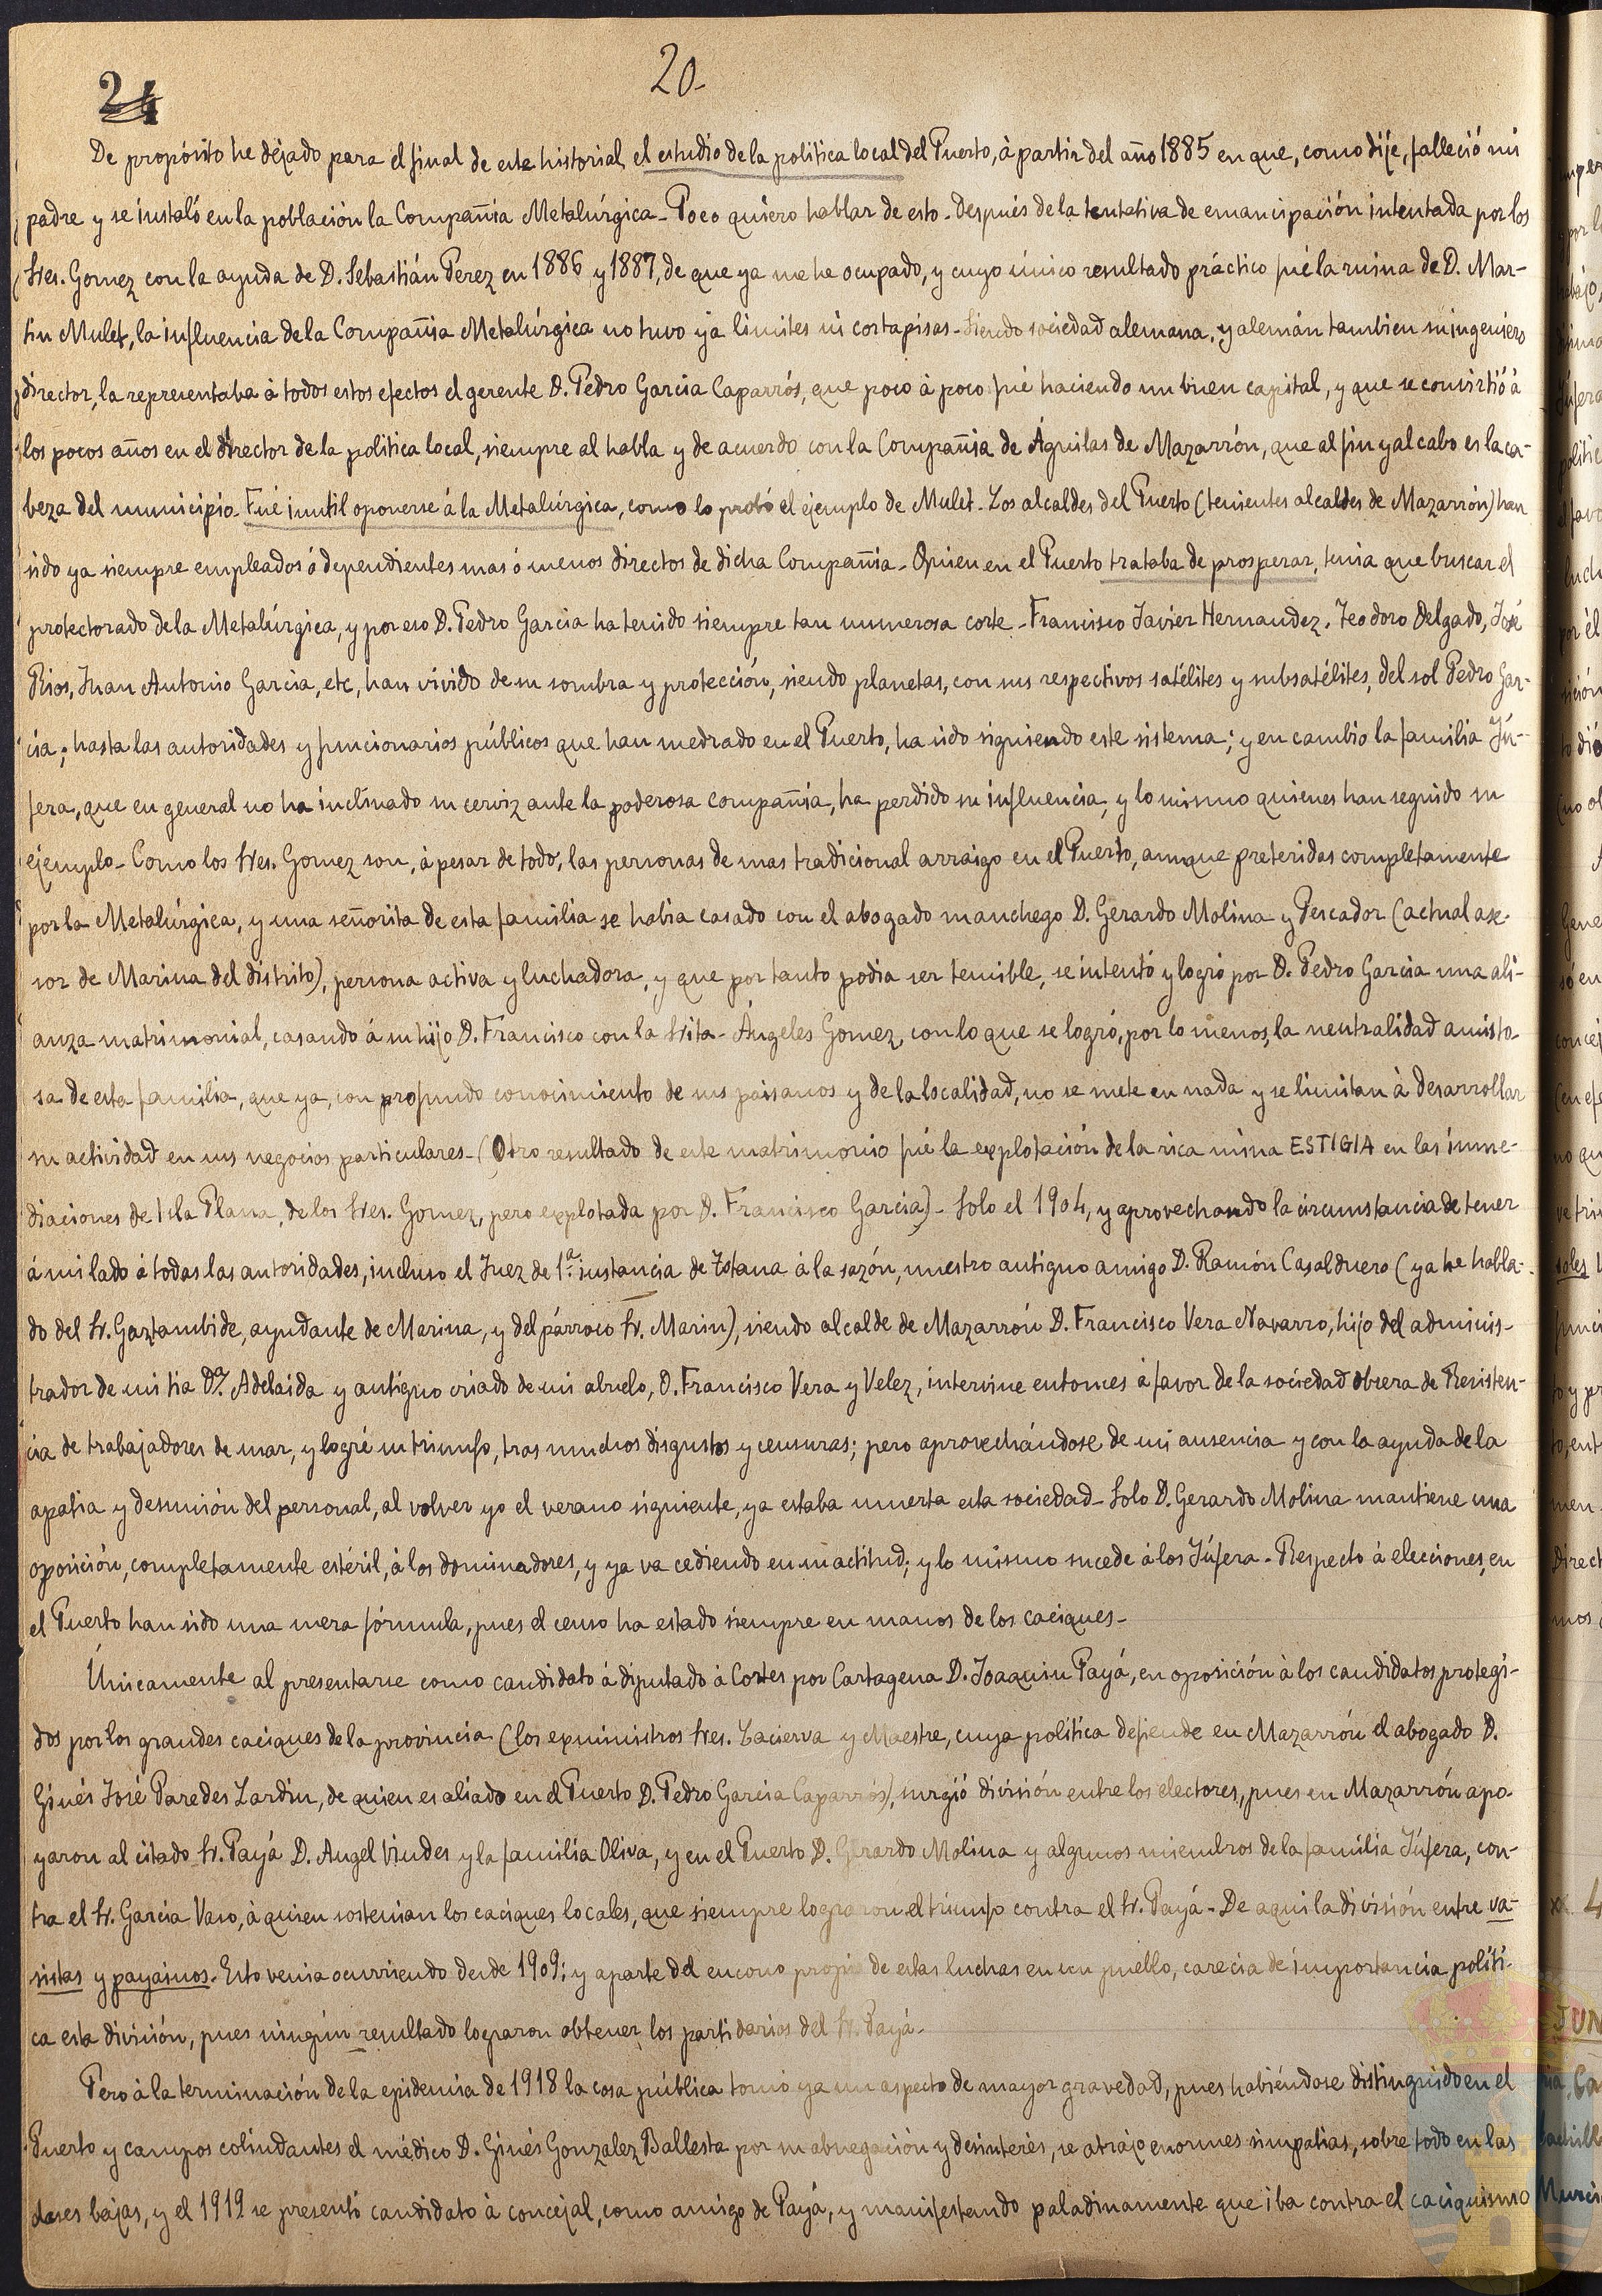 20-
24
De propósito he dejado para el final de este historial el estudio de la politica local del Puerto, à partir del año 1885 en que, como dije, falleció mi
padre y se instaló en la población la Compañia Metalúrgica - Poco quiero hablar de esto - Después de la tentativa de emancipación intentada por los
Sres. Gomez con la ayuda de D. Sebastián Perez en 1886 y 1887, de que ya me he ocupado, y cuyo único resultado práctico fué la ruina de D. Mar-
tin Mulet, la influencia de la Compañia Metalúrgica no tuvo ya limites ni cortapisas - Siendo sociedad alemana, y alemán tambien su ingeniero
director, la representaba à todos estos efectos el gerente D. Pedro Garcia Caparrós, que poco à poco fué haciendo un buen capital, y que se convirtió à
los pocos años en el director de la politica local, siempre al habla y de acuerdo con la Compañia de Águilas de Mazarrón, que al fin y al cabo es la ca-
beza del municipio - Fué inutil oponerse á la Metalúrgica, como lo probó el ejemplo de Mulet - Los alcaldes del Puerto (tenientes alcaldes de Mazarrón) han
sido ya siempre empleados ó dependientes mas ó menos directos de dicha Compañia - Quien en el Puerto trataba de prosperar, tenia que buscar el
protectorado de la Metalúrgica, y por eso D. Pedro Garcia ha tenido siempre tan numerosa corte - Francisco Javier Hernandez, Teodoro Delgado, José
Rios, Juan Antonio Garcia, etc, han vivido de su sombra y protección, siendo planetas, con sus respectivos satélites y subsatélites, del sol Pedro Gar-
cia; hasta las autoridades y funcionarios públicos que han medrado en el Puerto, ha sido siguiendo este sistema; y en cambio la familia Jú-
fera, que en general no ha inclinado su cerviz ante la poderosa compañia, ha perdido su influencia, y lo mismo quienes han seguido su
ejemplo - Como los Sres. Gomez son, à pesar de todo, las personas de mas tradicional arraigo en el Puerto, aunque preteridas completamente
por la Metalúrgica, y una señorita de esta familia se habia casado con el abogado manchego D. Gerardo Molina y Pescador (actual ase-
sor de Marina del distrito), persona activa y luchadora, y que por tanto podia ser temible, se intentó y logró por D. Pedro Garcia una ali-
anza matrimonial, casando á su hijo D. Francisco con la Srita - Ángeles Gomez, con lo que se logró, por lo menos, la neutralidad amisto-
sa de esta familia, que ya, con profundo conocimiento de sus paisanos y de la localidad, no se mete en nada y se limitan à desarrollar
su actividad en sus negocios particulares - (Otro resultado de este matrimonio fué la explotación de la rica mina ESTIGIA en las inme-
diaciones de Isla Plana, de los Sres. Gomez, pero explotada por D. Francisco Garcia) - Solo el 1904, y aprovechando la circunstancia de tener
á mi lado á todas las autoridades, incluso el Juez de 1ª instancia de Totana à la sazón, nuestro antiguo amigo D. Ramón Casalduero (ya he habla-
do del Sr. Gaztambide, ayudante de Marina, y del párroco Sr. Marin), siendo alcalde de Mazarrón D. Francisco Vera Navarro, hijo del adminis-
trador de mi tia Dª. Adelaida y antiguo criado de mi abuelo, D. Francisco Vera y Velez, intervine entonces à favor de la sociedad obrera de Resisten-
cia de trabajadores de mar, y logré su triunfo, tras muchos disgustos y censuras; pero aprovechándose de mi ausencia y con la ayuda de la
apatia y desunión del personal, al volver yo el verano siguiente, ya estaba muerta esta sociedad - Solo D. Gerardo Molina mantiene una
oposición, completamente estéril, à los dominadores, y ya va cediendo en su actitud; y lo mismo sucede à los Júfera - Respecto à elecciones, en
el Puerto han sido una mera fórmula, pues el censo ha estado siempre en manos de los caciques -
Únicamente al presentarse como candidato à diputado à Cortes por Cartagena D. Joaquin Payá, en oposición à los candidatos protegi-
dos por los grandes caciques de la provincia (los exministros Sres. Lacierva y Maestre, cuya politica defiende en Mazarrón el abogado D.
Ginés José Paredes Lardin, de quien es aliado en el Puerto D. Pedro Garcia Caparrós), surgió división entre los electores, pues en Mazarrón apo-
yaron al citado Sr. Payá D. Angel Viudes y la familia Oliva, y en el Puerto D. Gerardo Molina y algunos miembros de la familia Júfera, con-
tra el Sr. Garcia Vaso, à quien sostenian los caciques locales, que siempre lograron el triunfo contra el Sr. Payá - De aqui la división entre va-
sistas y payainos - Esto venia ocurriendo desde 1909; y aparte del encono propio de estas luchas en un pueblo, carecia de importancia politi-
ca esta división, pues ningún resultado lograron obtener los partidarios del Sr. Payá -
Pero à la terminación de la epidemia de 1918 la cosa pública tomó ya un aspecto de mayor gravedad, pues habiéndose distinguido en el
Puerto y campos colindantes el médico D. Ginés Gonzalez Ballesta por su abnegación y desinterés, se atrajo enormes simpatias, sobre todo en las
clases bajas, y el 1919 se presentó candidato à concejal, como amigo de Payá, y manifestando paladinamente que iba contra el caciquismo